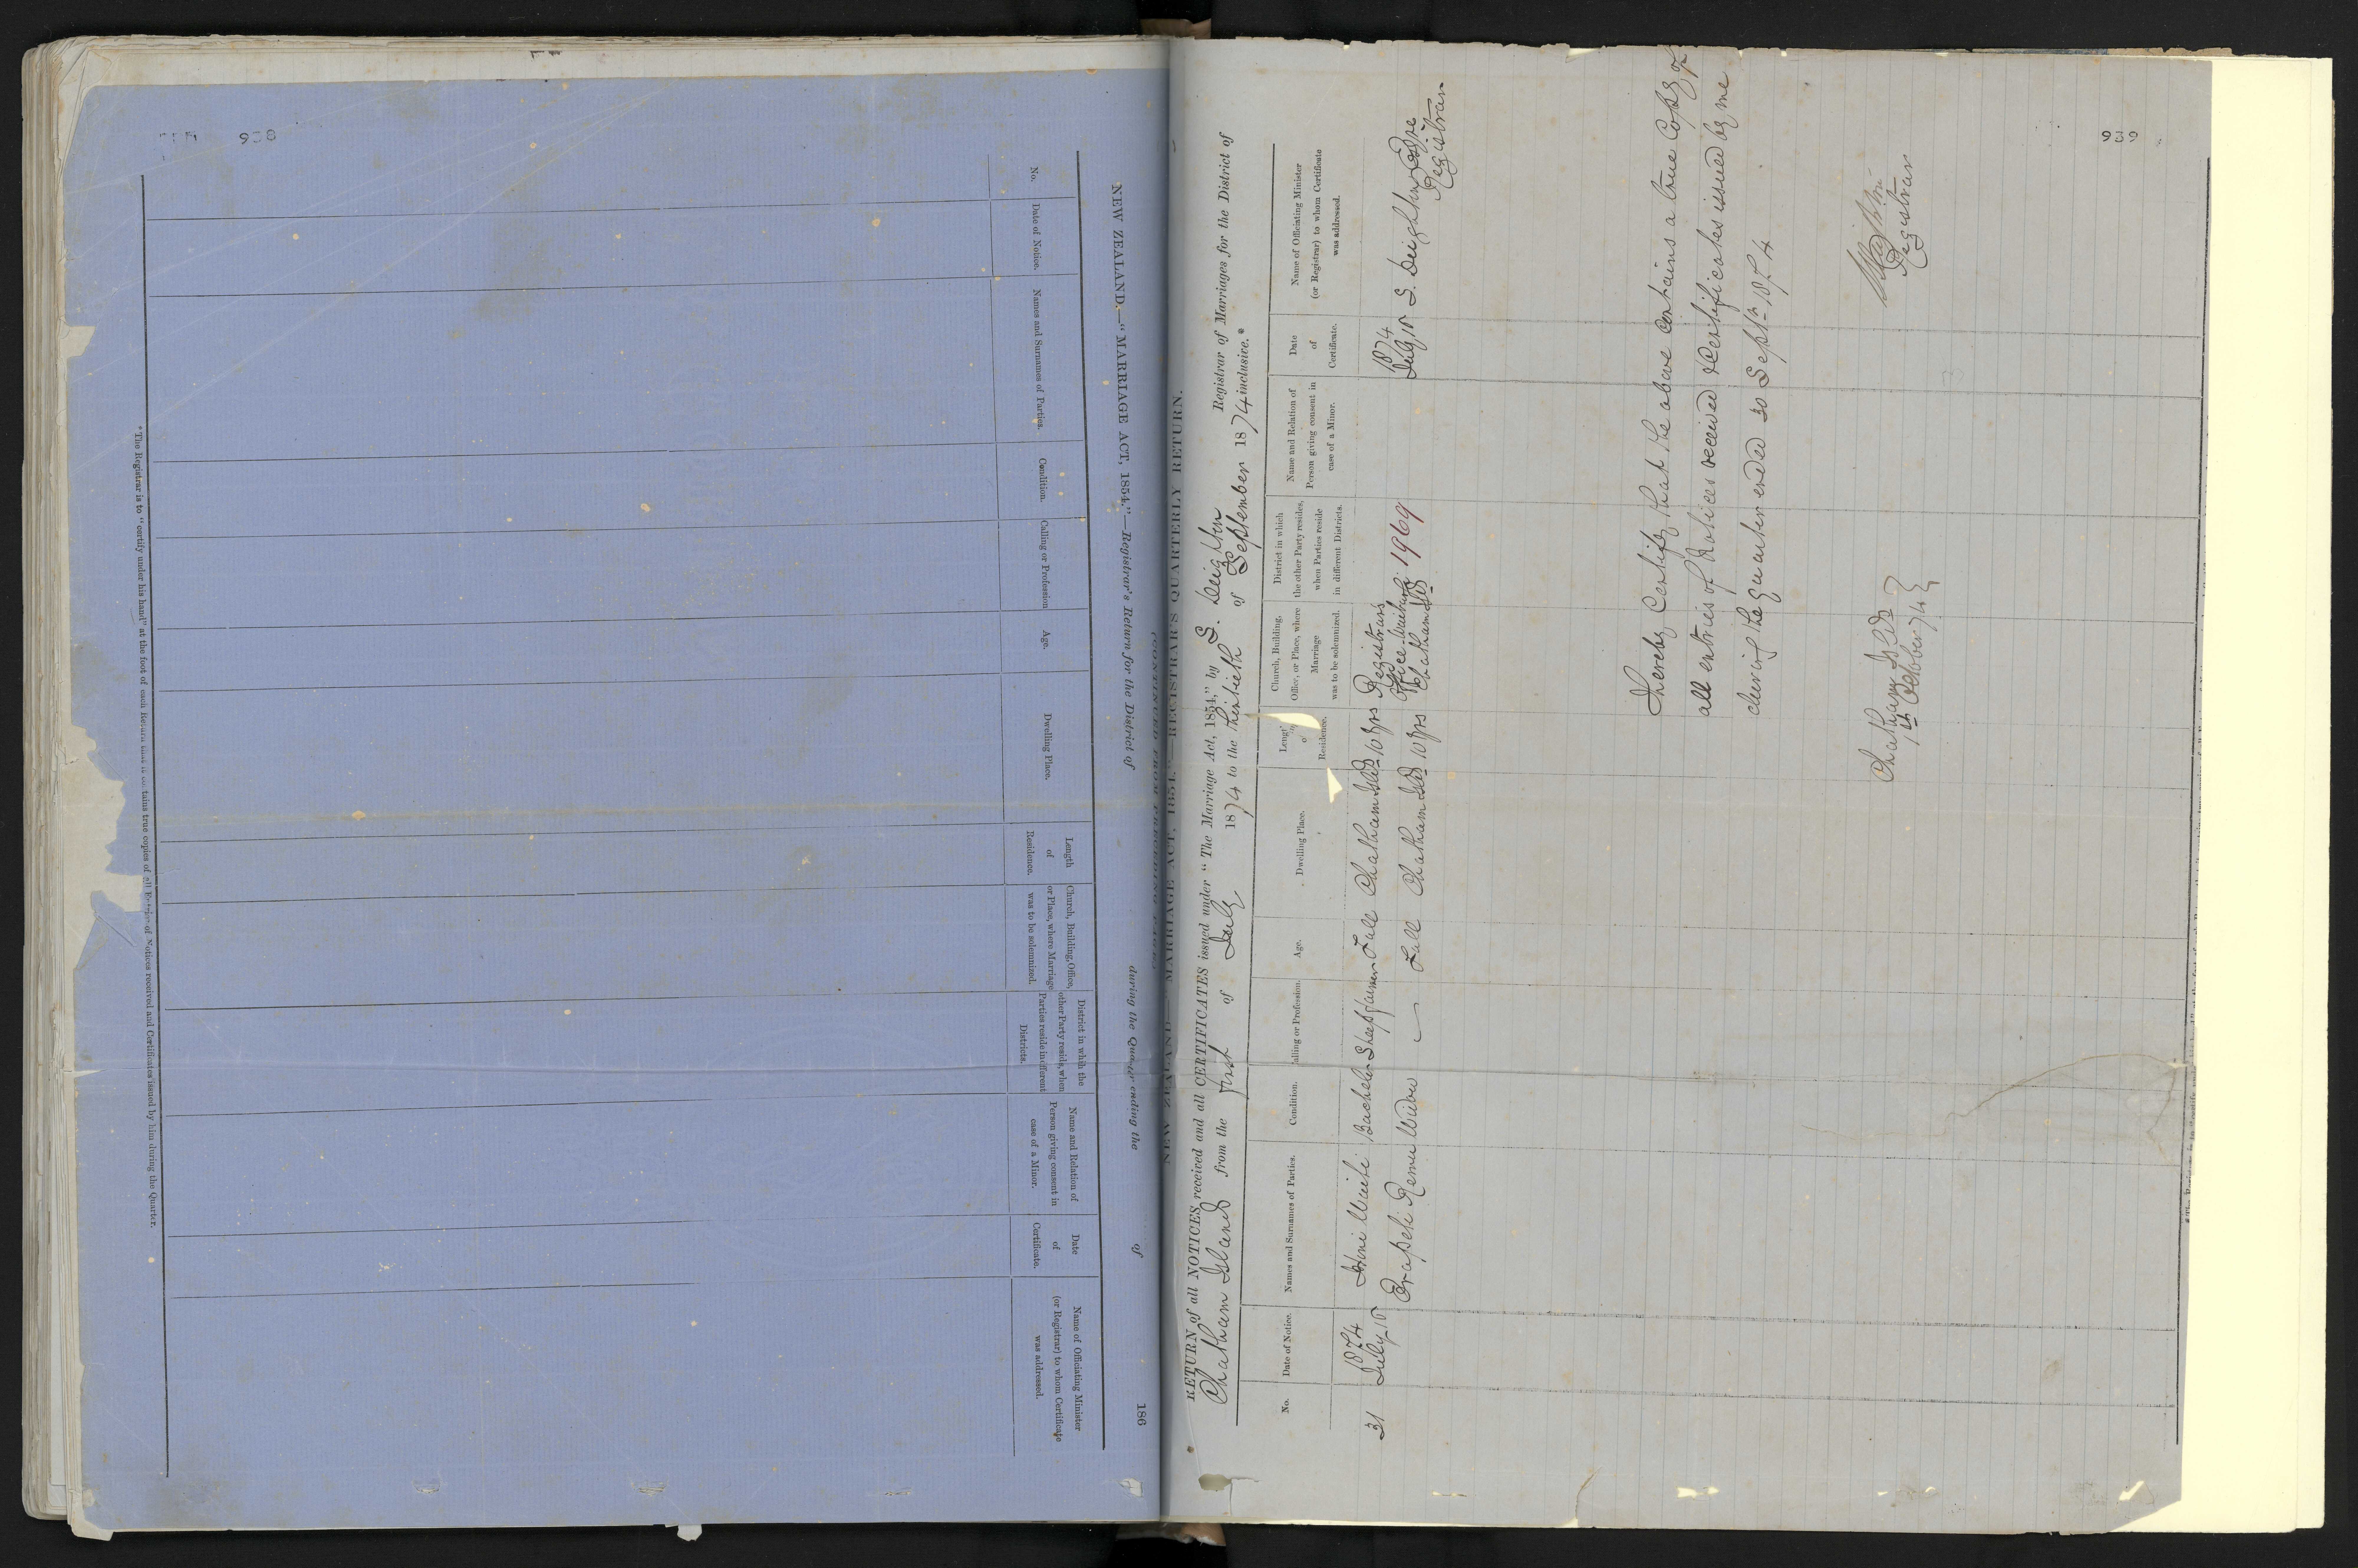 938
NEW ZEALAND.—"MARRIAGE ACT, 1854."—Registrar's Return for the District of during the Quarter ending the of 186
No.
Date of Notice.
Names and Surnames of Parties.
Condition.
Calling or Profession
Age.
Dwelling Place.
Length
of
Residence.
Church, Building, Office,
or Place, where Marriage
was to be solemnized.
District in which the
other Party resids, when
Parties reside in different
Districts.
Name and Relation of
Person giving consent in
case of a Minor.
Date
of
Certificate.
Name of Officiating Minister
(or Registrar) to whom Certificate
was addressed.
* The Registrar is to "certify under his hand" at the foot of each Return that it contains true copies of all Entries of Notices received and Certificates issued by him during the Quarter.
NEW ZEALAND.—"MARRIAGE ACT, 1854."—REGISTRAR'S QUARTERLY RETURN.
RETURN of all NOTICES received and all CERTIFICATES issued under "The Marriage Act, 1854," by S. Deighton Registrar of Marriages for the District of
Chatham Islands from the first of July 1874 to the thirtieth of September 1874 inclusive.*
No.
Date of Notice.
Names and Surnames of Parties.
Condition.
Calling or Profession.
Age.
Dwelling Place.
Length
of
Residence.
Church, Building,
Office, or Place, where
Marriage
was to be solemnized.
District in which
the other Party resides,
when Parties reside
in different Districts.
Name and Relation of
Person giving consent in
case of a Minor.
Date
of
Certificate.
Name of Officiating Minister
(or Registrar) to whom Certificate
was addressed.
31
1874
July 15
Hone Waiti Bachelor Sheepfarmer Full Chatham Islds 10 yrs
Erapeti Remu Widow — Full Chatham Islds 10 yrs
Registrars
Office Waitangi
Chatham Islds
1969
1874
July 15
S. Deighton Esqre
Registrar
I hereby Certify that the above Contains a true Copy of
all entries of Notices received & Certificates issued by me
during the quarter ended 30 Septr 1874
Chatham Islds
1st October 74
Registrar
939